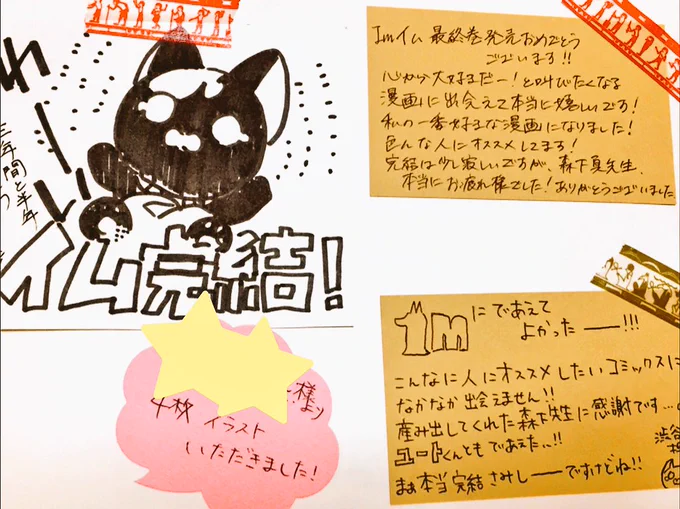 わーーー
三年間と半年
イム完結!
Imイム 最終巻発売おめでとう
ございます!!
心から大好きだー!と叫びたくなる
漫画に出会えて本当に嬉しいです!
私の一番好きな漫画になりました!
色んな人にオススメします!
完結は少し寂しいですが、森下真先生、
本当にお疲れ様でした!ありがとうございました
様より
4枚 イラスト
いただきました!
imにであえて
よかったーー!!!
こんなに人にオススメしたいコミックスに
なかなか出会えません!!
産み出してくれた森下先生に感謝です…
ユートくんともであえた…!!
まぁ本当完結さみしーーですけどね!!
渋谷